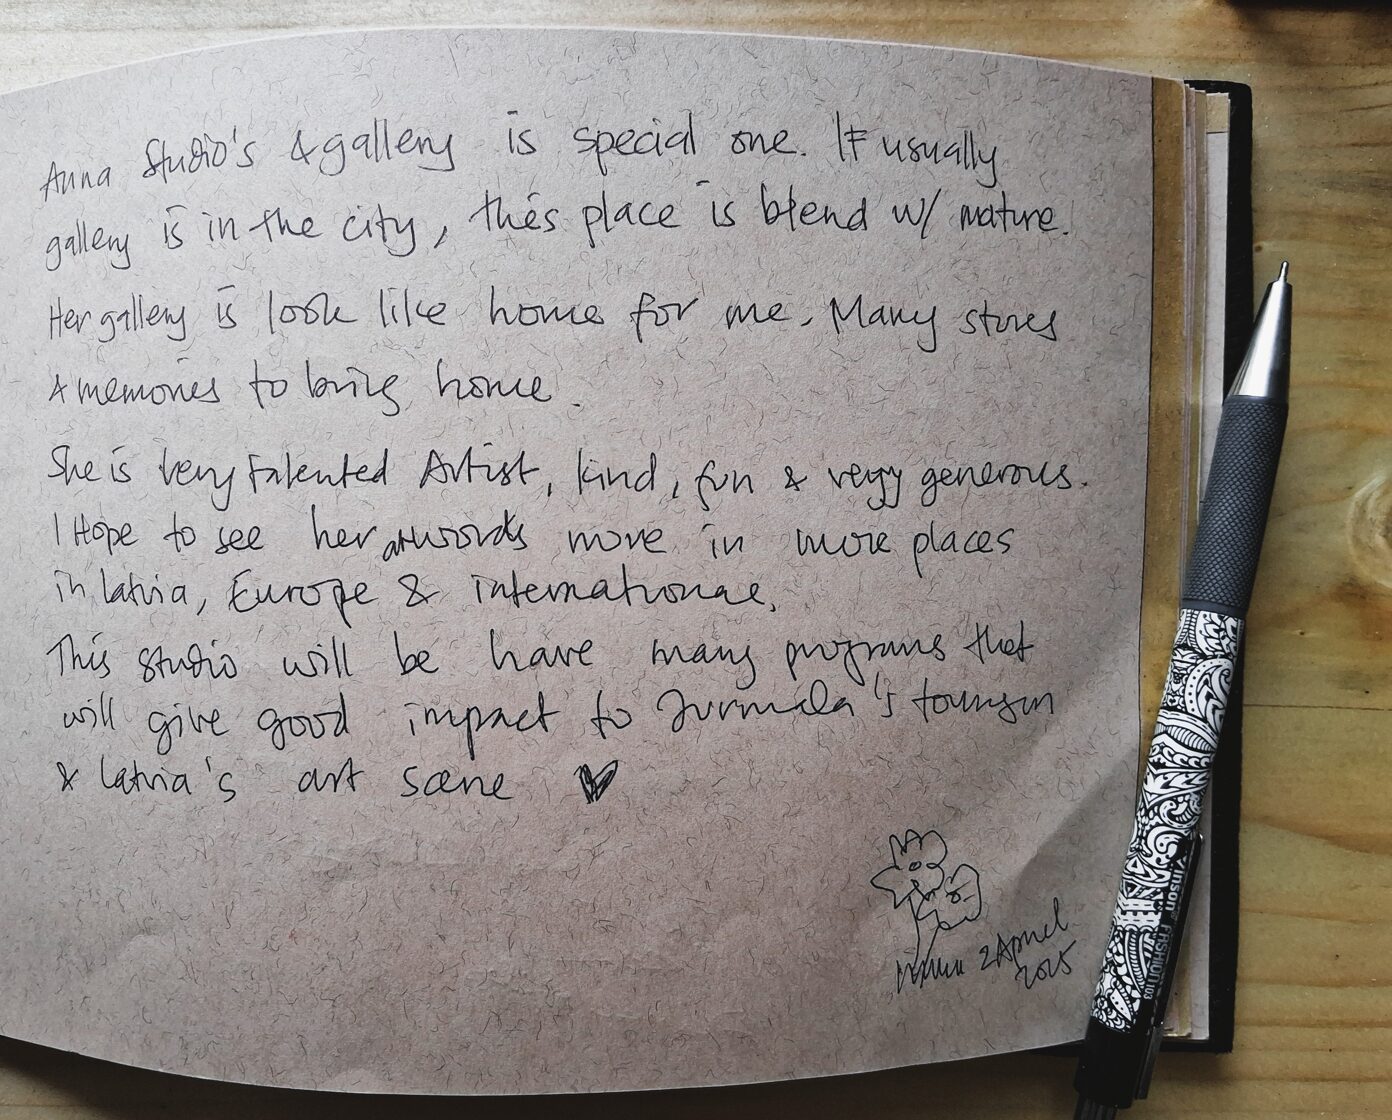 Anna Studio's & gallery is special one. If usually
gallery is in the city, thés place is blend w/ nature.
Her gallery is look like home for me. Many stories
& memories to bring home.
She is very talented Artist, kind, fun & veryy generous.
I Hope to see her artworks more in more places
in latvia, Europe & international.
This studio will be have many programs that
will give good impact to Jurmala's tourism
& latvia's art scene ♥
2 April
2025
Vinson
FASHION 103